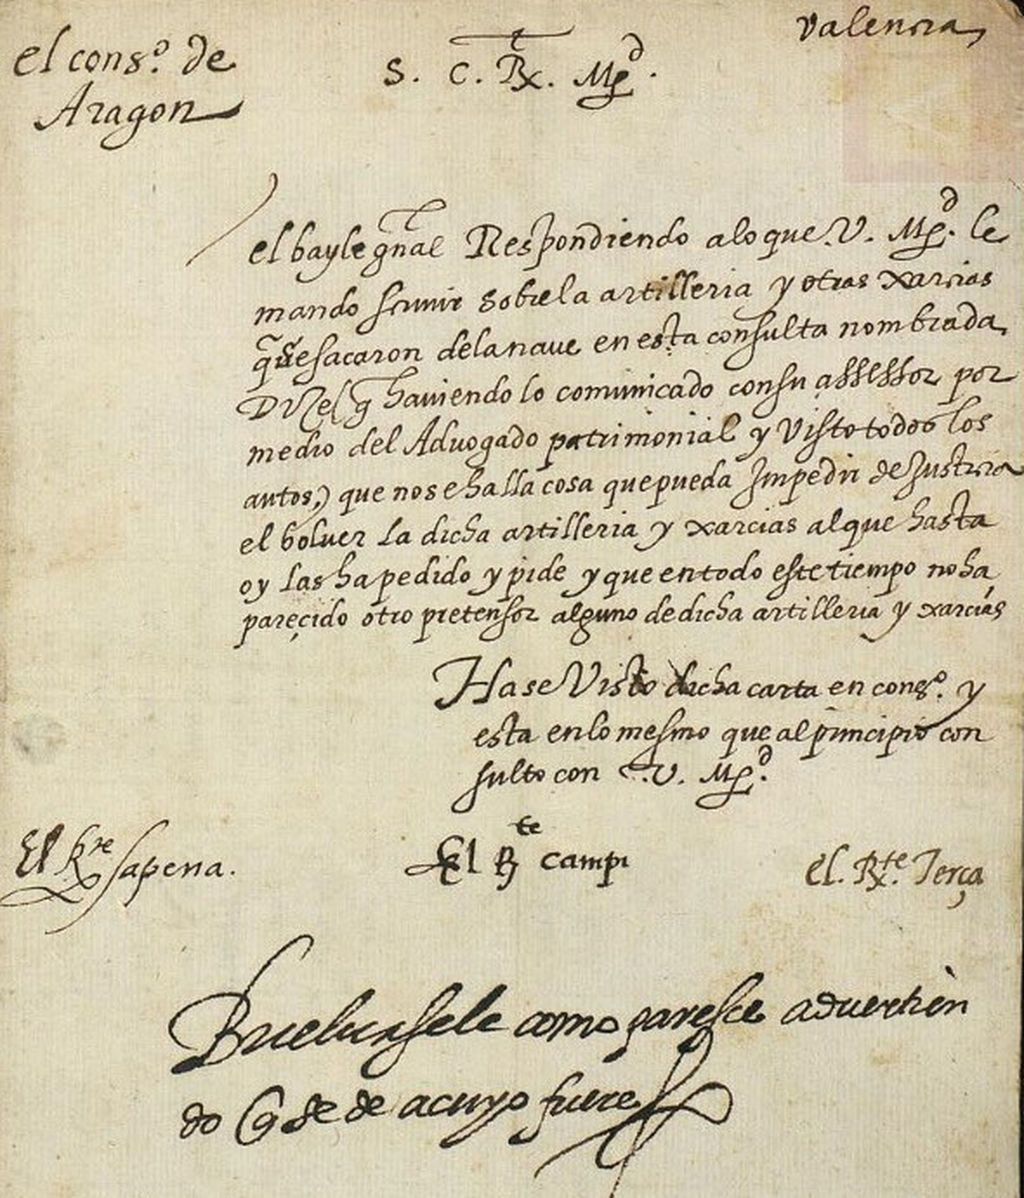 Valencia
el cons.º de
Aragon
S. C. R. Mg.d
el bayle gñal Respondiendo alo que .V. Mg.d le
mando scriuir sobre la artilleria y otras xarcias
q̃ se sacaron de la naue en esta consulta nombrada
Dize (q̃ hauiendo lo comunicado con su assessor por
medio del Aduogado patrimonial y Visto todos los
autos,) que no se halla cosa que pueda Impedir de Justicia
el boluer la dicha artilleria y xarcias al que hasta
oy las ha pedido y pide y que en todo este tiempo no ha
pareçido otro pretensor alguno de dicha artilleria y xarcias
Hase Visto dicha carta en cons.º y
esta en lo mesmo que al principio con
sulto con .V. Mg.d
El R.te sapena.
El R.te campi
el. R.te Terça
Bueluasele como paresce aduertien
do q se de a cuyo fuere